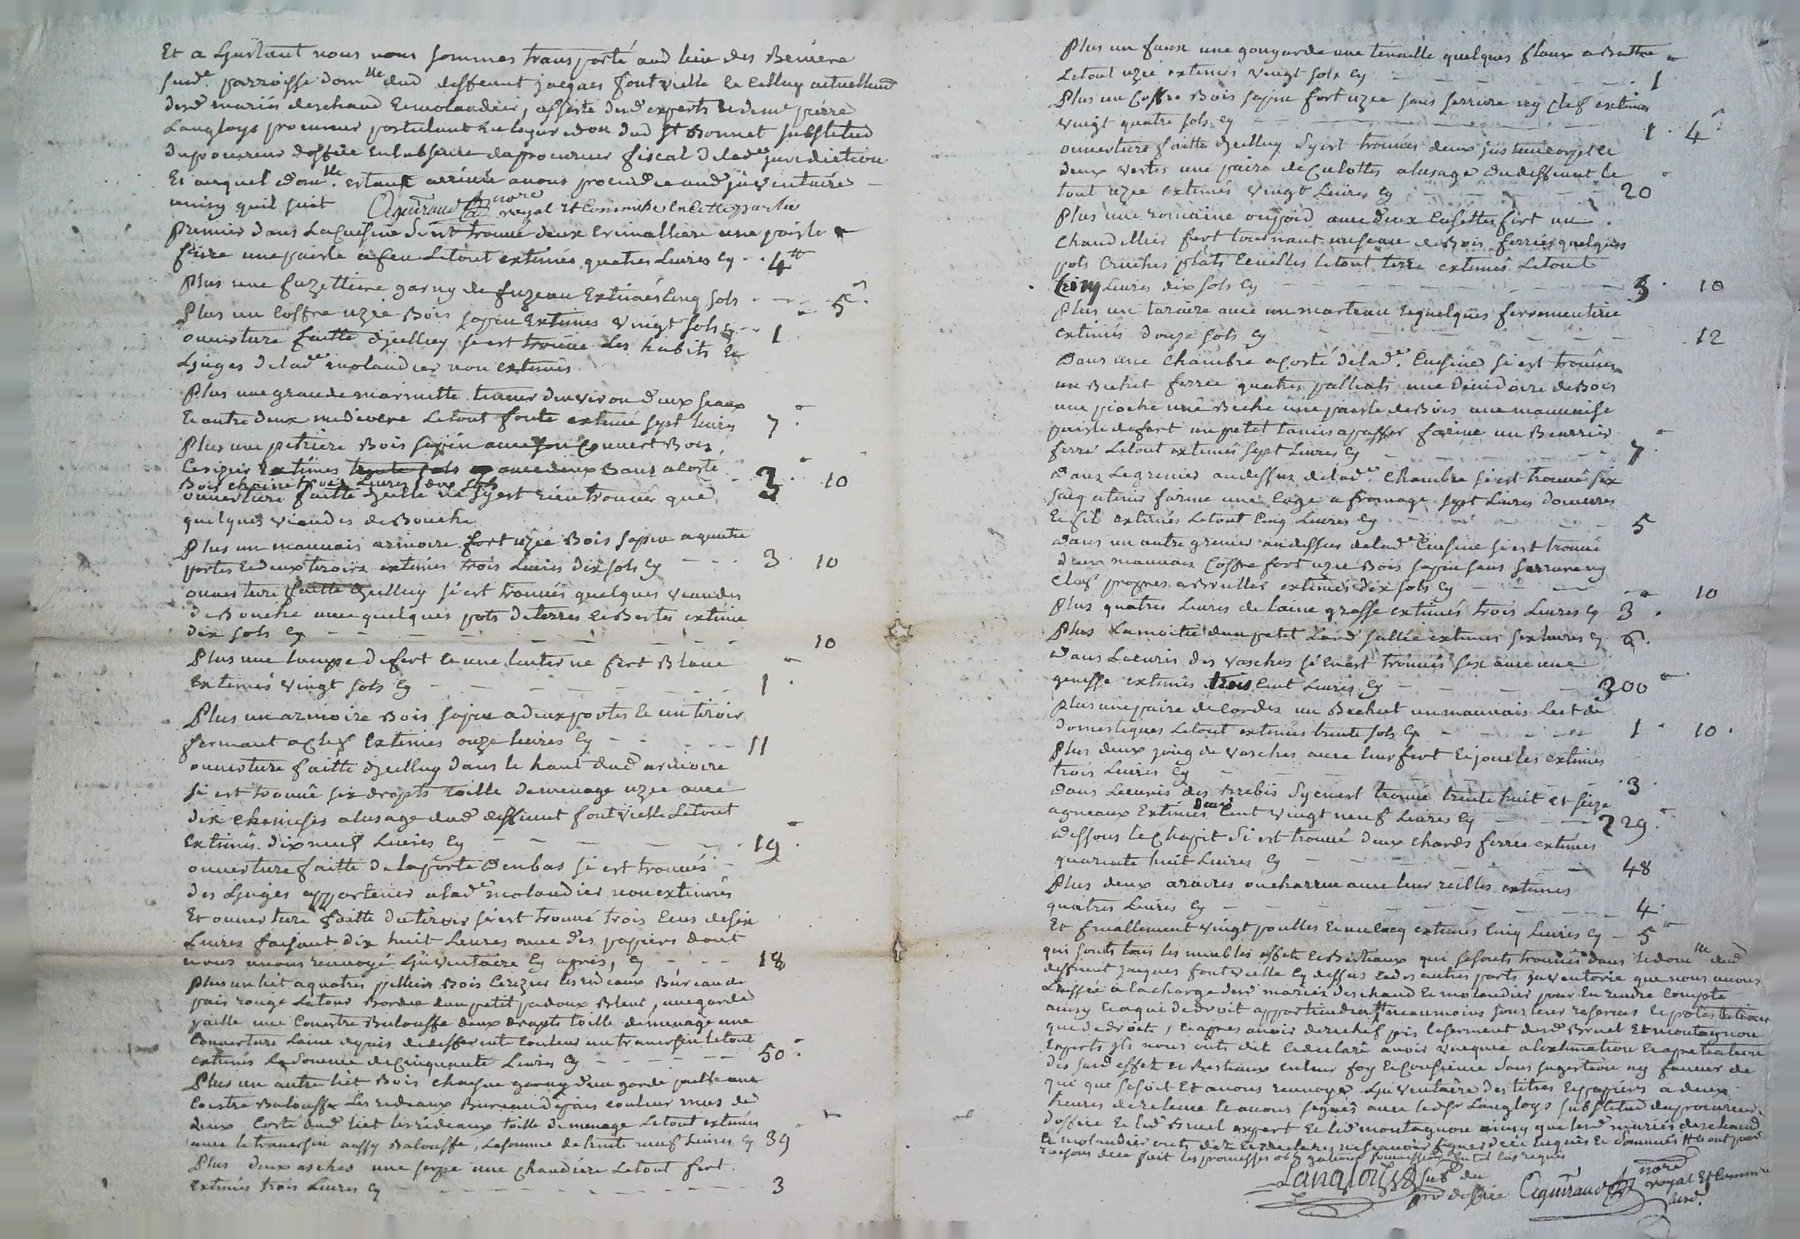 Et a Linstant nous nous sommes transporté aud lieu des
susd.e parroisse dom.lle dud deffeunt jacques fontvielle Et Celluy actuellement
desd mariés deschaud Et molaudier, assisté desd experts Et de me pierre
Langloys procureur postulant du st Bonnet substitud
du procureur doffice en labsence du procureur fiscal de lad.e juridiction
Et auquel dom.lle estant arrivée avons procédé aud inventaire
ainsy quil suit nore royal Et Commissre en Cette partie
Premier dans La Cuisine si est trouvé deux Cremalliere une poisle
frire une paisle a feu Le tout extimés quatres Livres Cy 4 tt
Plus une fuzettiere garny de fuzeau Extimés Cinq sols 5 s
Plus un Coffre uzée Bois sapin Extimés vingt sols Cy 1
ouverture faitte djcelluy si est trouvé des habits Et
Linges de lad.e molaudier non extimés
Plus une grande marmitte teneur denviron deux seaux
Et autre deux mediocre Le tout fonte extimé sept livres 7
Plus une petriere Bois sapin avec son Couvert Bois
Cerizier Extimés trente sols avec deux Bancs a Costé
Bois chaine trois Livres dix sols 3 10
ouverture faitte djcelle ne sy est rien trouver que
quelques viandes de Bouche
Plus un mauvais armoire fort uzée Bois sapin a quatre
portes Et deux tiroirs extimés trois Livres dix sols Cy 3 10
ouverture faitte djcelluy si est trouvés quelques viandes
de Bouche avec quelques pots de terres Et Bertes extimé
dix sols Cy 10
Plus une lampe de fert Et une lanterne fert Blanc
Extimés vingt sols Cy 1
Plus un armoire Bois sapin a deux portes Et un tiroir
fermant a Clef Extimés onze livres Cy 11
ouverture faitte djcelluy dans le haut dud armoire
si est trouvé six drapts toille de menage uzée avec
dix chemises a lusage dud deffeunt fontvielle Le tout
Extimés dix neuf Livres Cy 19
ouverture faitte de la porte Denbas si est trouvés
des Linges appartenir a lad.e molaudier non extimés
Et ouverture faitte du tiroir si est trouvé trois Ecus de six
Livres faisant dix huit Livres avec des papiers dont
nous avons renvoyé Linventaire Cy aprés, Cy 18
Plus un lit a quatres pilliers Bois Cerizier les rideaux Bureau de
pais rouge Le tour Bordée dun petit padoux Bleut, une garde
paille une Couestre Balouffe deux drapts toille de menage une
Couverture Laine de pais de different Couleur un traversin Le tout
extimés La somme de Cinquante Livres Cy 50
Plus un autre lit Bois chasne garny dun garde paille une
Couestre Balouffe Les rideaux Bureau de pais couleur
deux Costé dud liet les rideaux toille de menage Le tout extimés
avec le traversin aussy Balouffe, La somme de trente neuf Livres Cy 39
Plus deux asches une serpe une chaudiere Le tout fert
extimés trois Livres Cy 3
Plus un faux une gouyarde une tenaille quelques flaux a Battre
Le tout uzée extimés vingt sols Cy 1
Plus un Coffre Bois sapin fort uzée sans serrure ny Clef extimés
vingt quatre sols Cy 1 4 s
ouverture faitte djcelluy sy est trouvés deux justaucorps Et
deux vestes une paire de Culottes a lusage dud deffeunt le
tout uzée extimés vingt Livres Cy 20
Plus une romaine ou poid avec deux Cassettes fert un
chandellier fert tournant un seau de Bois ferrés quelques
pots Cruches plats Ecuelles le tout terre extimés Le tout
Livres dix sols Cy 3 10
Plus un taraire avec un marteau Et quelques ferrementerie
extimés douze sols Cy 12
Dans une chambre a Costé de lad.e Cuisine si est trouvés
un Bichet ferrée quatres palliats une devidoire de Bois
une pioche une Beche une paesle de Bois une mauvaise
paisle de fert un petit tamis a passer farine un Beurrier
ferré Le tout extimés sept Livres Cy 7
Dans Le grenier au dessus de lad.e Chambre si est trouvé six
sacq a tenir farine une Cage a fromage sept Livres doeuvres
Et fil extimés Le tout Cinq Livres Cy 5
Dans un autre grenier au dessus de lad.e Cuisine si est trouvé
deux mauvais Coffre fort uzée Bois sapin sans serrure ny
Clef propres a Bruller extimés dix sols Cy 10
Plus quatres Livres de laine grasse extimés trois Livres Cy 3
Plus La moitié dun petit Lard sallée extimés six livres Cy 6
Dans Lecurie des vasches si en est trouvés six avec une
genisse extimés trois Cent Livres Cy 300
Plus une paire de Cordes un Bechut un mauvais Liet de
domestiques Le tout extimés trente sols Cy 1 10
Plus deux joug de vasches avec leur fert Et joucles extimés
trois Livres Cy 3
Dans Lecurie des Brebis sy en est trouvé trente huit Et seize
agneaux Extimés deux Cent vingt neuf Livres Cy 229
Dessous le Chapit si est trouvé deux chards ferrée extimés
quarante huit Livres Cy 48
Plus deux araires ou charrue avec leur reilles extimés
quatres Livres Cy 4
Et finallement vingt poulles Et un Cocq extimés Cinq Livres Cy 5
qui sonts tous les meubles effets Et Bestiaux qui se sonts trouvés dans Le dom.lle dud
deffeunt jacques fontvielle Cy dessus Et des autres parts inventorié que nous avons
Laissée a la charge desd mariés deschaud Et molaudier pour En rendre Compte
ainsy Et a qui de droit appartiendra
que de droit, Et apres avoir derechef pris Le serment desd Bruel Et montagnon
Experts ils nous onts dit Et declaré avoir vacqué a lextimation
des susd effets Et Bestiaux en leur foy Et Conscience sans sugestion ny faveur de
qui que se soit Et avons renvoyé Linventaire des titres Et papiers a deux
heures de relevée Et avons signés avec led sr Langloys substitud du procureur
doffice Et led Bruel expert Et led montagnon ainsy que lesd mariés deschaud
Et molaudier onts dit Et declarés ne sçavoir signer de ce Enquis Et sommés
Langloys sub du
pro doffice nore royal Et Commre
susd.